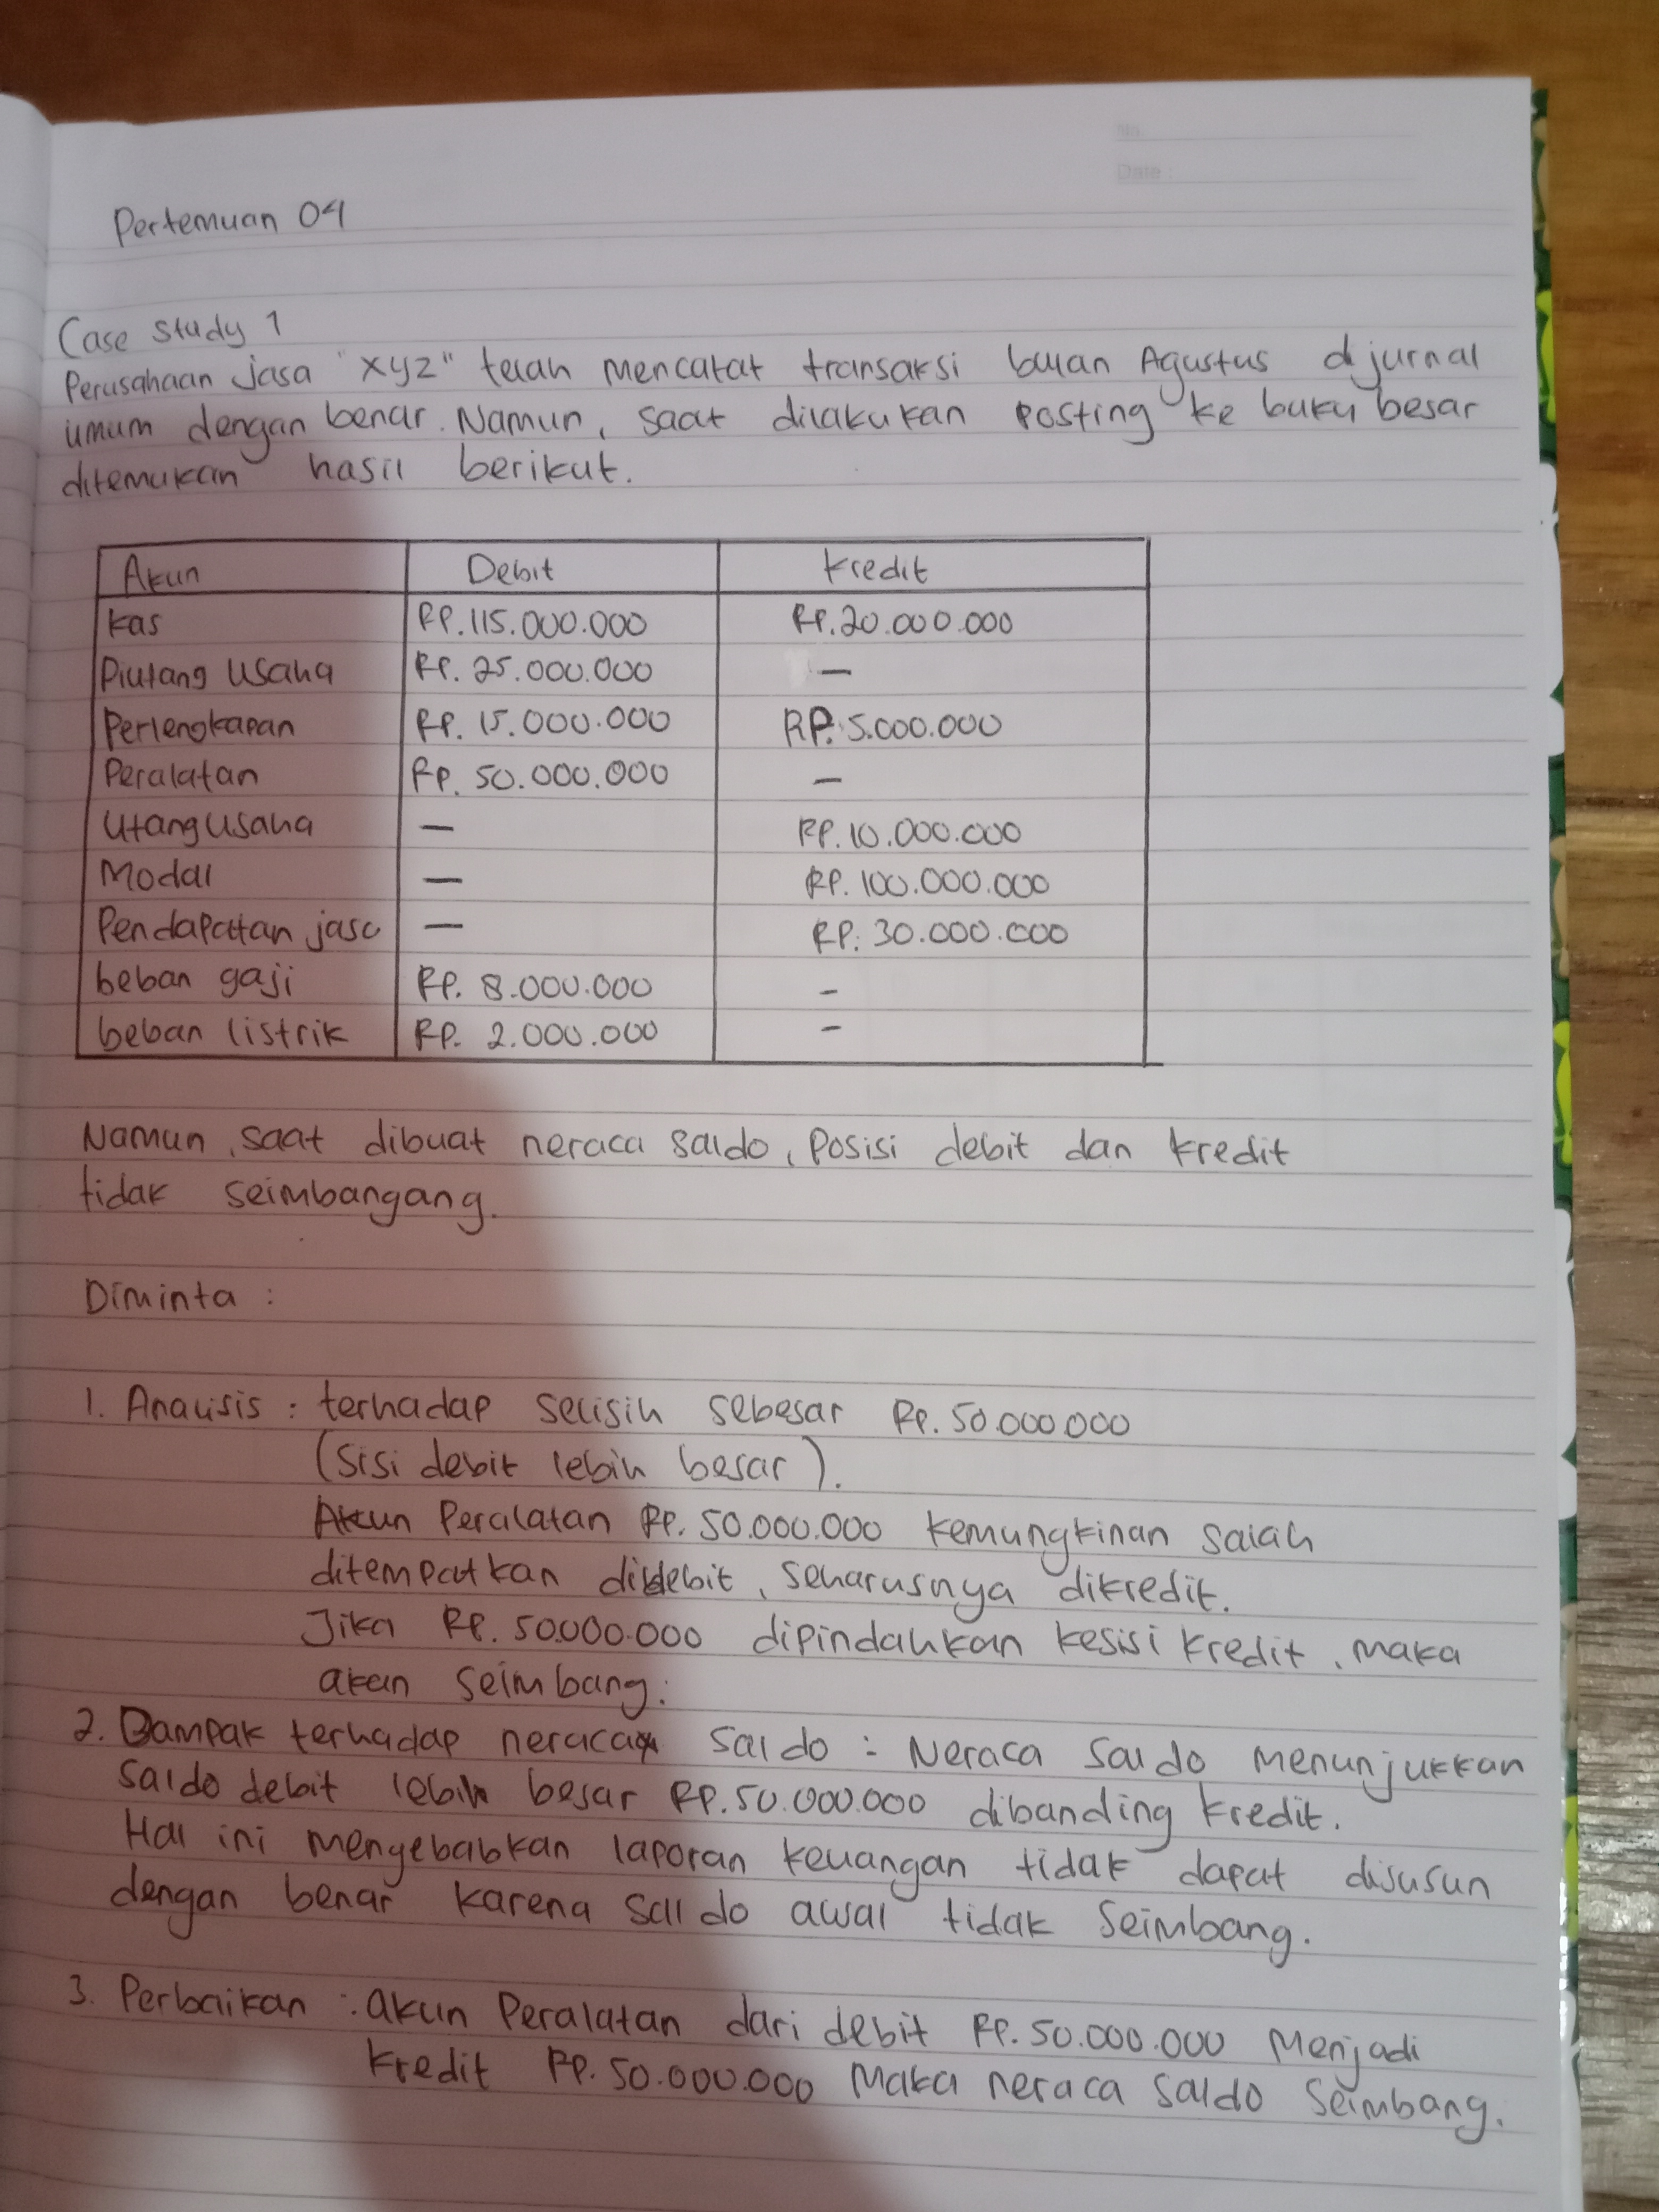 No
Date :
Pertemuan 04
Case study 1
Perusahaan jasa "xyz" telah mencatat transaksi bulan Agustus dijurnal
umum dengan benar. Namun, saat dilakukan Posting ke buku besar
ditemukan hasil berikut.
Akun Debit Kredit
Kas RP. 115.000.000 RP. 20.000.000
Piutang usaha RP. 25.000.000 —
Perlengkapan RP. 15.000.000 RP. 5.000.000
Peralatan RP. 50.000.000 —
Utang usaha — RP. 10.000.000
Modal — RP. 100.000.000
Pendapatan jasa — RP. 30.000.000
beban gaji RP. 8.000.000 -
beban listrik RP. 2.000.000 -
Namun, saat dibuat neraca saldo, Posisi debit dan kredit
tidak seimbangang.
Diminta :
1. Analisis : terhadap selisih sebesar RP. 50.000.000
(Sisi debit lebih besar).
Akun Peralatan RP. 50.000.000 kemungkinan salah
ditempatkan didebit, seharusnya dikredit.
Jika RP. 50.000.000 dipindahkan kesisi kredit, maka
akan seimbang.
2. Dampak terhadap neraca saldo : Neraca saldo menunjukkan
saldo debit lebih besar RP. 50.000.000 dibanding kredit.
Hal ini mengebabkan laporan keuangan tidak dapat disusun
dengan benar karena saldo awal tidak seimbang.
3. Perbaikan : akun Peralatan dari debit RP. 50.000.000 Menjadi
kredit RP. 50.000.000 Maka neraca saldo seimbang.